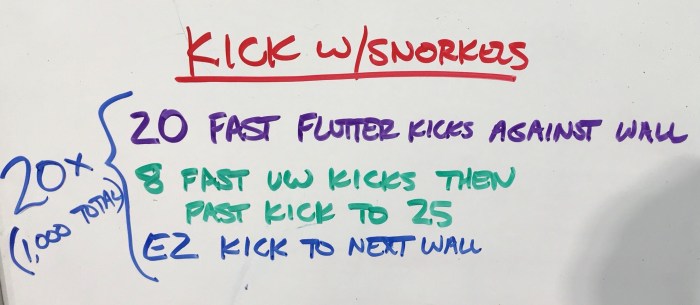 KICK W/SNORKELS
20 FAST FLUTTER KICKS AGAINST WALL
20x
8 FAST UW KICKS THEN
FAST KICK TO 25
(1,000 TOTAL)
EZ KICK TO NEXT WALL